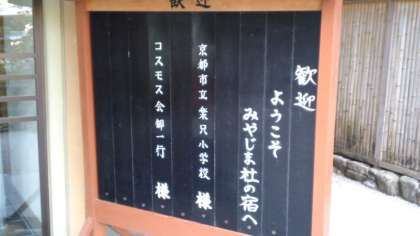 歓迎
歓迎
ようこそ
みやじま杜の宿へ
京都市立 楽只小学校 様
コスモス会御一行 様